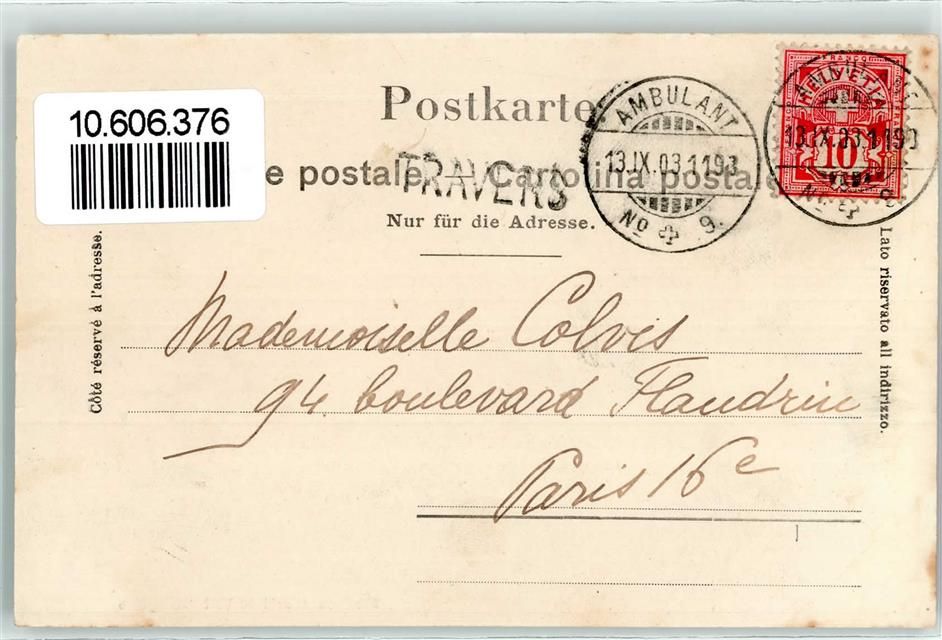 10.606.376
Postkarte
e postale. — Cartolina postale
TRAVERS
Nur für die Adresse.
AMBULANT
13.IX.03.1193
No 9.
FRANCO
HELVETIA
10
13.IX.03.1193
No 9.
Côté réservé à l'adresse.
Lato riservato all indirizzo.
Mademoiselle Colvis
94 boulevard Flandrin
Paris 16e